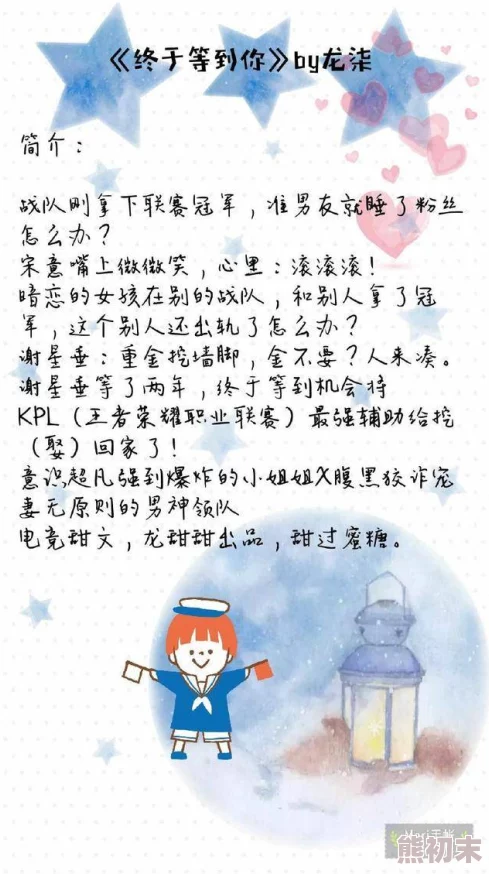 《终于等到你》by龙柒
简介：
战队刚拿下联赛冠军，准男友就睡了粉丝
怎么办？
宋意嘴上微微笑，心里：滚滚滚！
暗恋的女孩在别的战队，和别人拿了冠
军，这个别人还出轨了怎么办？
谢星垂：重金挖墙脚，金不要？人来凑。
谢星垂等了两年，终于等到机会将
KPL（王者荣耀职业联赛）最强辅助给挖
（娶）回家了！
意识超凡强到爆炸的小姐姐X腹黑狡诈宠
妻无原则的男神领队
电竞甜文，龙甜甜出品，甜过蜜糖。
熊初末